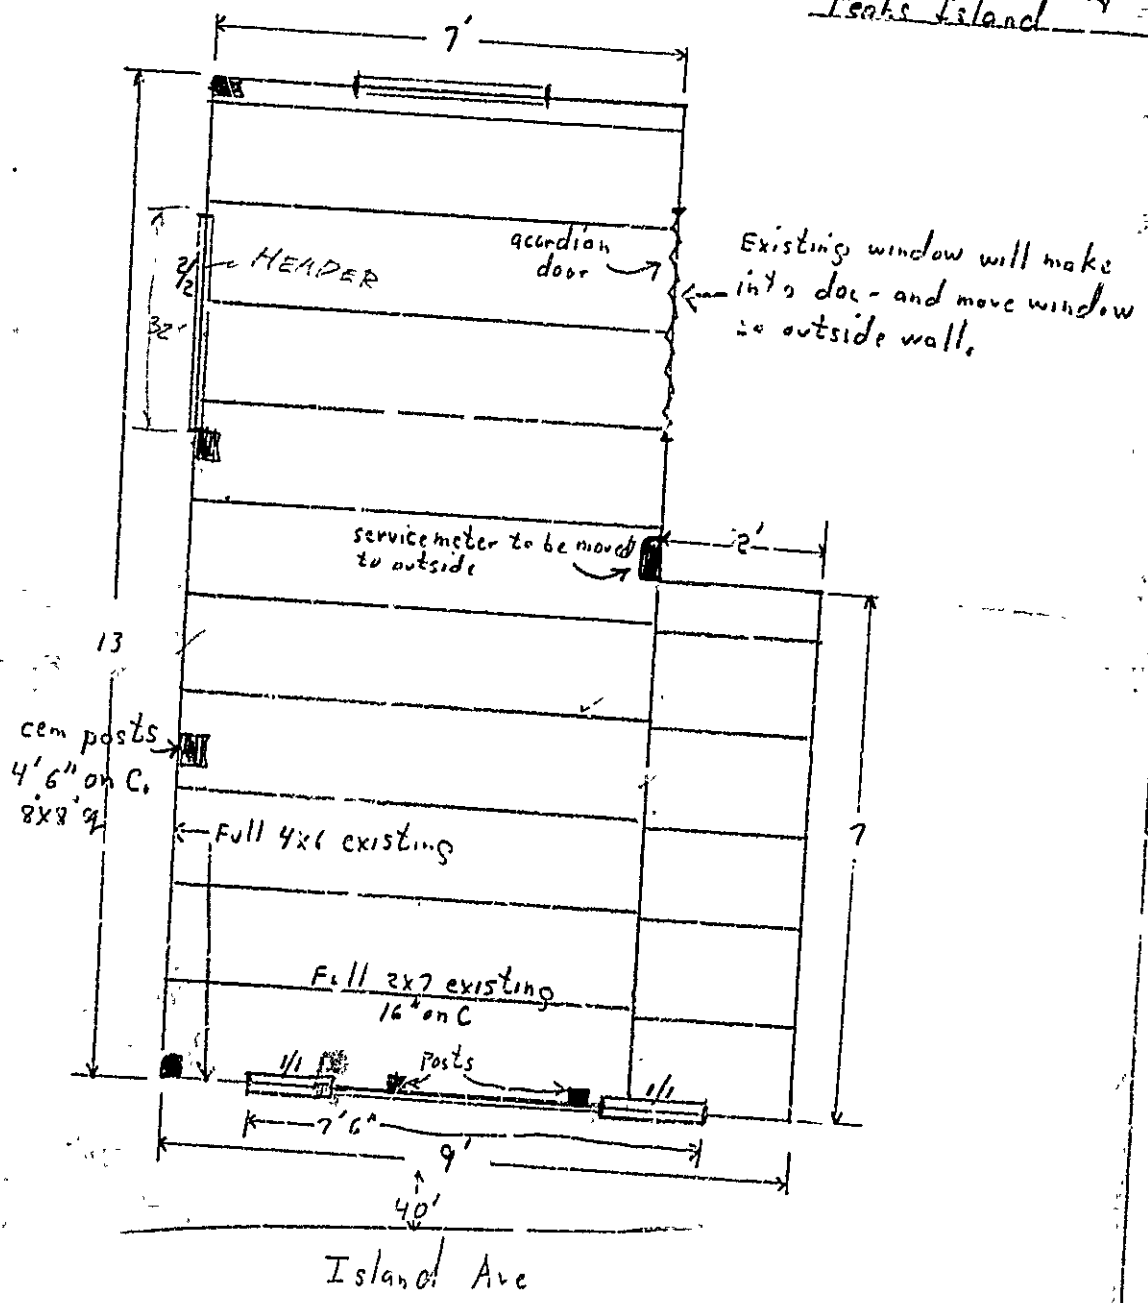 Peaks Island
7'
acordian
door
Existing window will make
into doo- and move window
to outside wall.
HEADER
2/2
32"
service meter to be moved
to outside
2'
13
cem posts
4' 6" on C.
8x8
Full 4x6 existing
7
Full 2x7 existing
16" on C
1/1
Posts
1/1
7' 6"
9'
40'
Island Ave